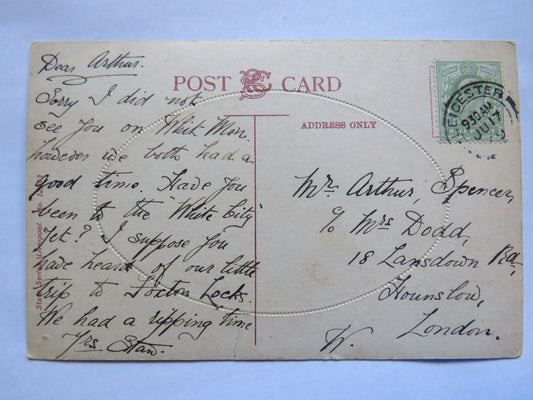 Dear Arthur.
Sorry I did not
see you on Whit Mon.
however we both had a
good time. Have you
been to the "White City"
yet? I suppose you
have heard of our little
trip to Foxton Locks.
We had a ripping time
Yrs Stan.
POST CARD
ADDRESS ONLY
Mr. Arthur, Spencer,
c/o Mrs Dodd,
18 Lansdown Rd,
Hounslow,
London.
W.
LEICESTER
9.30 AM
JU 17